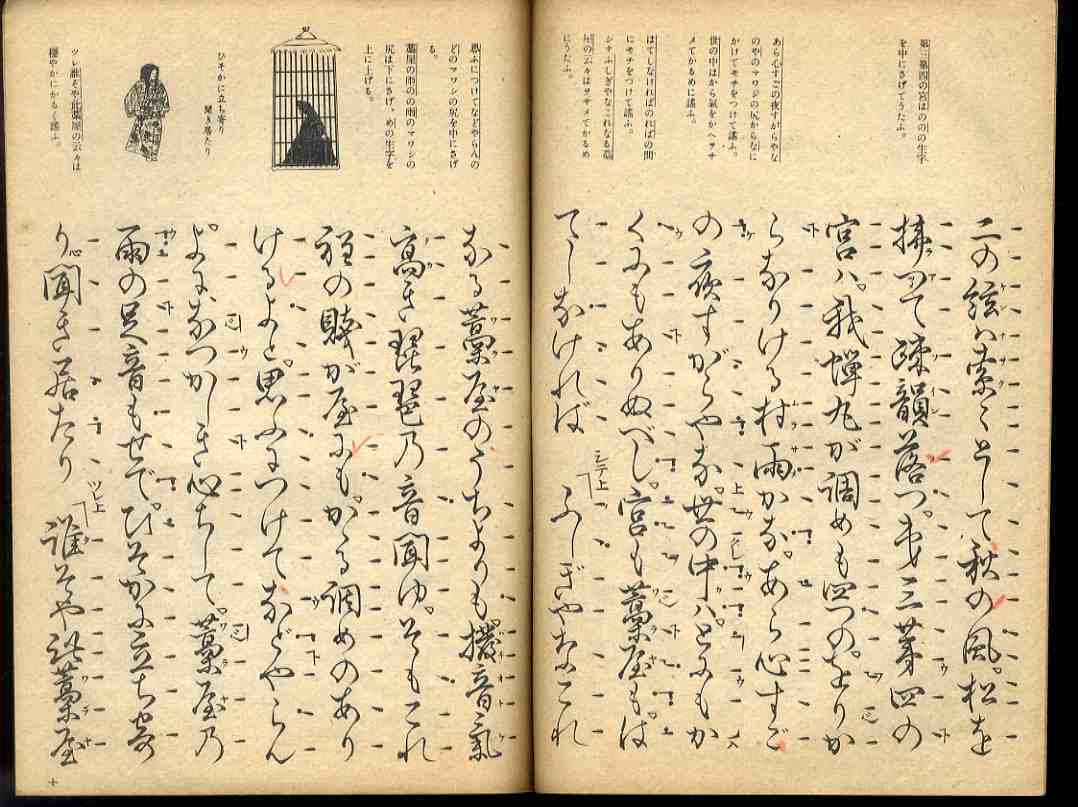 第三第四の宮はののの生字
を中にさげてうたふ。
あら心すごの夜すがらやな
のやのマワシの尻からなに
かけてモチをつけて謡ふ。
世の中はから氣をかへヲサ
メてかるめに謡ふ。
はてしなければのればの間
にモチをつけて謡ふ。
シテふしぎやなこれなる藁
屋の云々はヲサメてかるめ
にうたふ。
二の絃は索々として秋の風。松を
拂つて疎韻落つ。第三第四の
宮ハ。我蝉丸が調めも四つの。をりか
らなりける村雨かな。あら心すご
の夜すがらやな。世の中ハ。とにもか
くにもありぬべし。宮も藁屋も。は
てしなければ シテ上 ふしぎやなこれ
思ふにつけてなどやらんの
どのマワシの尻を中にさげ
る。
藁屋の雨のの雨のマワシの
尻は下にさげ、めの生字を
上に上げる。
ひそかに立ち寄り
聞き居たり
ツレ誰そや此藁屋の云々は
穏やかにかるく謡ふ。
なる藁屋のうちよりも。撥音氣
高き琵琶乃音聞ゆ。そもこれ
程の賤が屋にも。かゝる調めのあり
けるよと。思ふにつけてなどやらん
よになつかしき心ちして。藁屋乃
雨の足音もせで。ひそかに立ち寄
り聞き居たり ツレ上 誰そや此藁屋
十